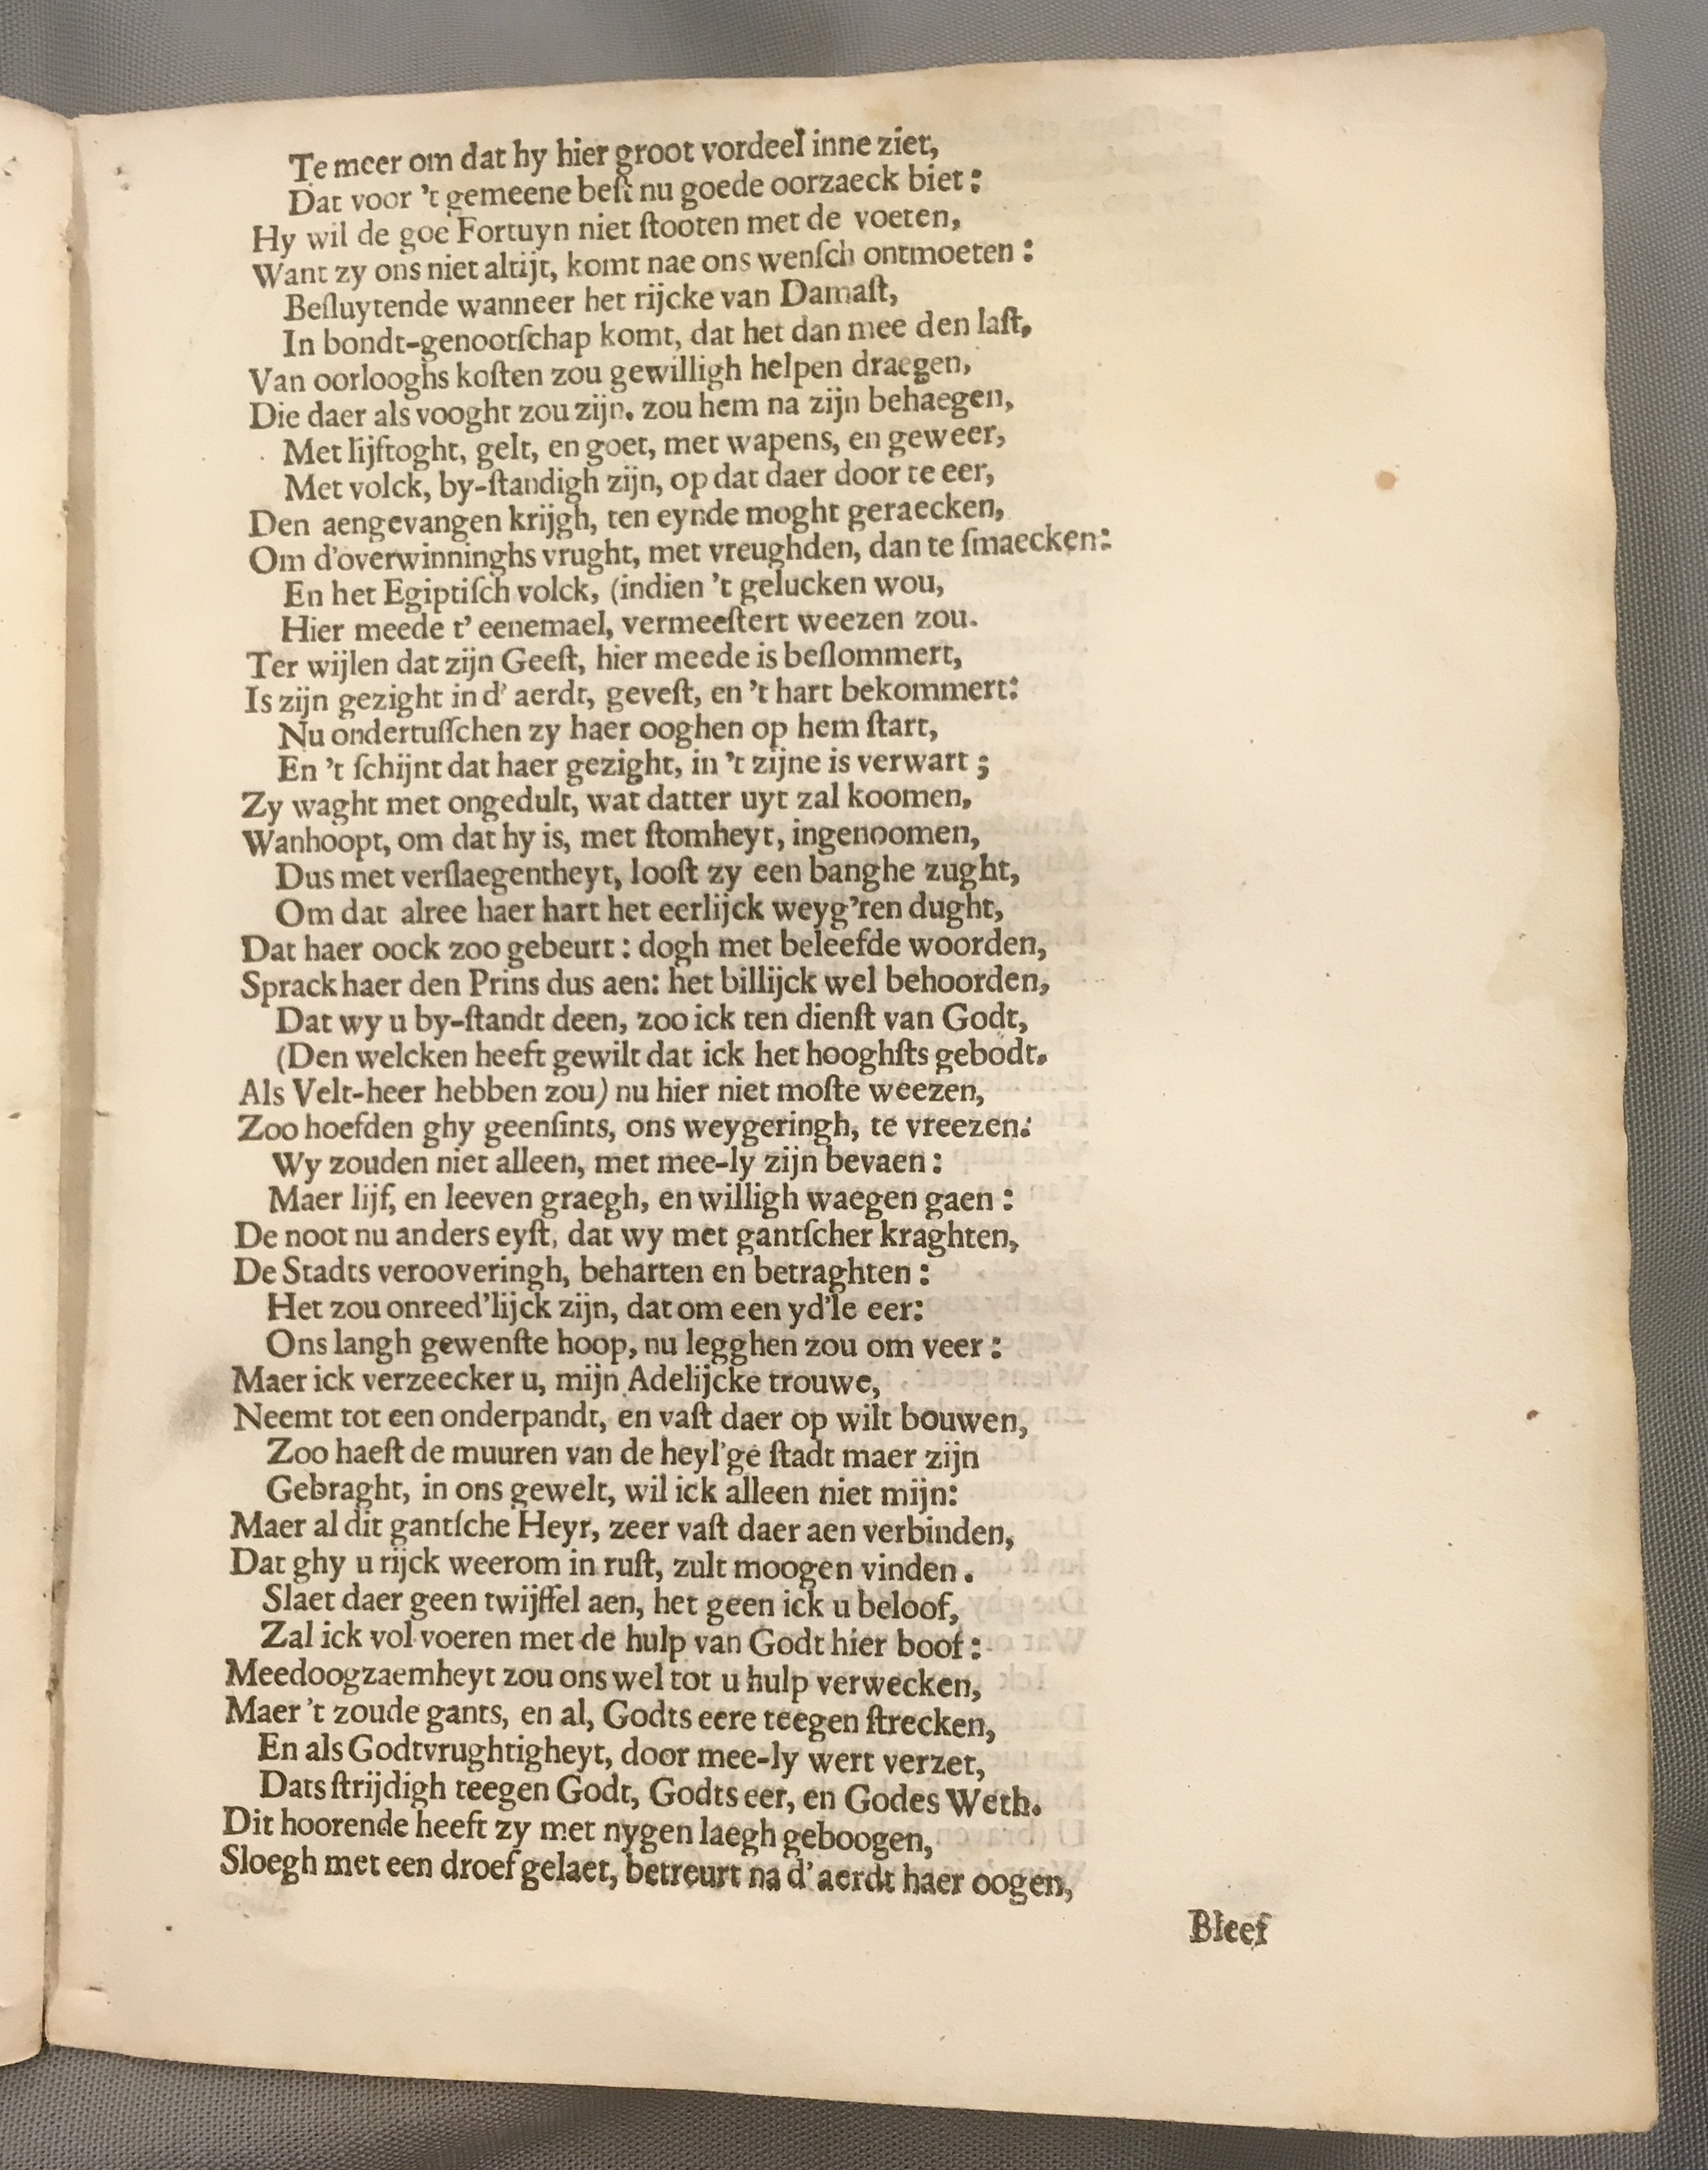 Te meer om dat hy hier groot vordeel inne ziet,
Dat voor 't gemeene beſt nu goede oorzaeck biet:
Hy wil de goe Fortuyn niet ſtooten met de voeten,
Want zy ons niet altijt, komt nae ons wenſch ontmoeten:
Beſluytende wanneer het rijcke van Damaſt,
In bondt-genootſchap komt, dat het dan mee den laſt,
Van oorlooghs koſten zou gewilligh helpen draegen,
Die daer als vooght zou zijn. zou hem na zijn behaegen,
Met lijftoght, gelt, en goet, met wapens, en geweer,
Met volck, by-ſtandigh zijn, op dat daer door te eer,
Den aengevangen krijgh, ten eynde moght geraecken,
Om d'overwinninghs vrught, met vreughden, dan te ſmaecken:
En het Egiptiſch volck, (indien 't gelucken wou,
Hier meede t' eenemael, vermeeſtert weezen zou.
Ter wijlen dat zijn Geeſt, hier meede is beſlommert,
Is zijn gezight in d' aerdt, geveſt, en 't hart bekommert:
Nu ondertuſſchen zy haer ooghen op hem ſtart,
En 't ſchijnt dat haer gezight, in 't zijne is verwart;
Zy waght met ongedult, wat datter uyt zal koomen,
Wanhoopt, om dat hy is, met ſtomheyt, ingenoomen,
Dus met verſlaegentheyt, looſt zy een banghe zught,
Om dat alree haer hart het eerlijck weyg'ren dught,
Dat haer oock zoo gebeurt: dogh met beleefde woorden,
Sprack haer den Prins dus aen: het billijck wel behoorden,
Dat wy u by-ſtandt deen, zoo ick ten dienſt van Godt,
(Den welcken heeft gewilt dat ick het hooghſts gebodt.
Als Velt-heer hebben zou) nu hier niet moſte weezen,
Zoo hoefden ghy geenſints, ons weygeringh, te vreezen:
Wy zouden niet alleen, met mee-ly zijn bevaen:
Maer lijf, en leeven graegh, en willigh waegen gaen:
De noot nu anders eyſt, dat wy met gantſcher kraghten,
De Stadts verooveringh, beharten en betraghten:
Het zou onreed'lijck zijn, dat om een yd'le eer:
Ons langh gewenſte hoop, nu legghen zou om veer:
Maer ick verzeecker u, mijn Adelijcke trouwe,
Neemt tot een onderpandt, en vaſt daer op wilt bouwen,
Zoo haeſt de muuren van de heyl'ge ſtadt maer zijn
Gebraght, in ons gewelt, wil ick alleen niet mijn:
Maer al dit gantſche Heyr, zeer vaſt daer aen verbinden,
Dat ghy u rijck weerom in ruſt, zult moogen vinden.
Slaet daer geen twijffel aen, het geen ick u beloof,
Zal ick vol voeren met de hulp van Godt hier boof:
Meedoogzaemheyt zou ons wel tot u hulp verwecken,
Maer 't zoude gants, en al, Godts eere teegen ſtrecken,
En als Godtvrughtigheyt, door mee-ly wert verzet,
Dats ſtrijdigh teegen Godt, Godts eer, en Godes Weth.
Dit hoorende heeft zy met nygen laegh geboogen,
Sloegh met een droef gelaet, betreurt na d' aerdt haer oogen,
Bleef